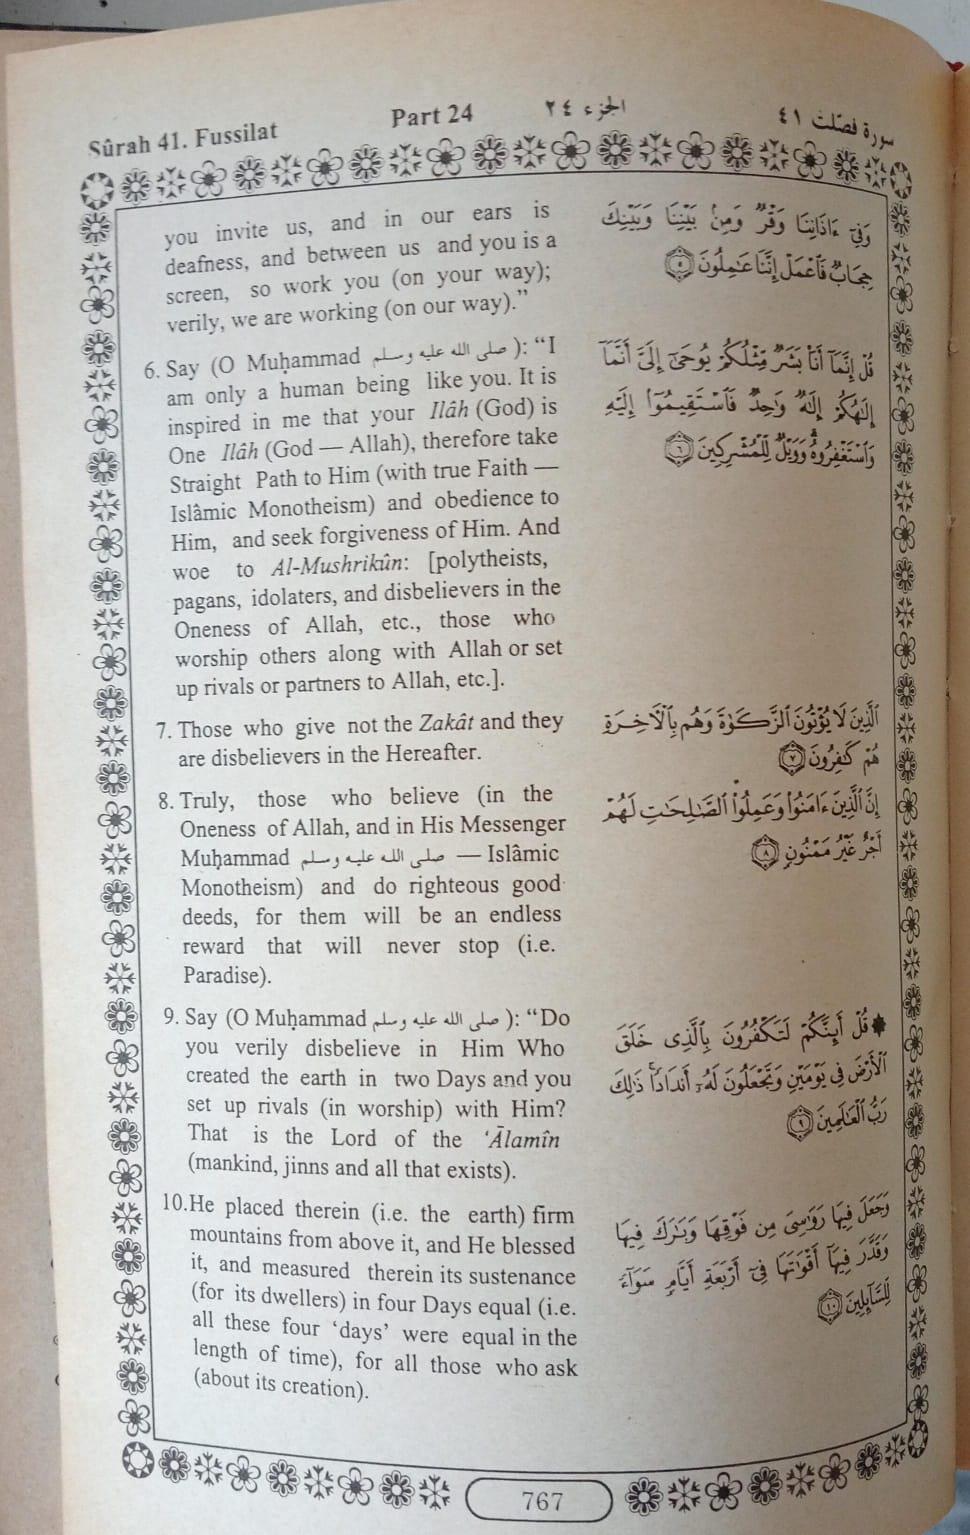 Sûrah 41. Fussilat
Part 24
الجزء ٢٤
سورة فصلت ٤١
you invite us, and in our ears is
deafness, and between us and you is a
screen, so work you (on your way);
verily, we are working (on our way).”
6. Say (O Muḥammad صلى الله عليه وسلم ): “I
am only a human being like you. It is
inspired in me that your Ilâh (God) is
One Ilâh (God — Allah), therefore take
Straight Path to Him (with true Faith —
Islâmic Monotheism) and obedience to
Him, and seek forgiveness of Him. And
woe to Al-Mushrikûn: [polytheists,
pagans, idolaters, and disbelievers in the
Oneness of Allah, etc., those who
worship others along with Allah or set
up rivals or partners to Allah, etc.].
7. Those who give not the Zakât and they
are disbelievers in the Hereafter.
8. Truly, those who believe (in the
Oneness of Allah, and in His Messenger
Muḥammad صلى الله عليه وسلم — Islâmic
Monotheism) and do righteous good
deeds, for them will be an endless
reward that will never stop (i.e.
Paradise).
9. Say (O Muḥammad صلى الله عليه وسلم ): “Do
you verily disbelieve in Him Who
created the earth in two Days and you
set up rivals (in worship) with Him?
That is the Lord of the ‘Ālamîn
(mankind, jinns and all that exists).
10. He placed therein (i.e. the earth) firm
mountains from above it, and He blessed
it, and measured therein its sustenance
(for its dwellers) in four Days equal (i.e.
all these four ‘days’ were equal in the
length of time), for all those who ask
(about its creation).
وَفِىٓ ءَاذَانِنَا وَقْرٌ وَمِنۢ بَيْنِنَا وَبَيْنِكَ
حِجَابٌ فَٱعْمَلْ إِنَّنَا عَـٰمِلُونَ ٥
قُلْ إِنَّمَآ أَنَا۠ بَشَرٌ مِّثْلُكُمْ يُوحَىٰٓ إِلَىَّ أَنَّمَآ
إِلَـٰهُكُمْ إِلَـٰهٌ وَٰحِدٌ فَٱسْتَقِيمُوٓا۟ إِلَيْهِ
وَٱسْتَغْفِرُوهُ ۗ وَوَيْلٌ لِّلْمُشْرِكِينَ ٦
ٱلَّذِينَ لَا يُؤْتُونَ ٱلزَّكَوٰةَ وَهُم بِٱلْـَٔاخِرَةِ
هُمْ كَـٰفِرُونَ ٧
إِنَّ ٱلَّذِينَ ءَامَنُوا۟ وَعَمِلُوا۟ ٱلصَّـٰلِحَـٰتِ لَهُمْ
أَجْرٌ غَيْرُ مَمْنُونٍ ٨
۞ قُلْ أَئِنَّكُمْ لَتَكْفُرُونَ بِٱلَّذِى خَلَقَ
ٱلْأَرْضَ فِى يَوْمَيْنِ وَتَجْعَلُونَ لَهُۥٓ أَندَادًا ۚ ذَٰلِكَ
رَبُّ ٱلْعَـٰلَمِينَ ٩
وَجَعَلَ فِيهَا رَوَٰسِىَ مِن فَوْقِهَا وَبَـٰرَكَ فِيهَا
وَقَدَّرَ فِيهَآ أَقْوَٰتَهَا فِىٓ أَرْبَعَةِ أَيَّامٍ سَوَآءً
لِّلسَّآئِلِينَ ١٠
767